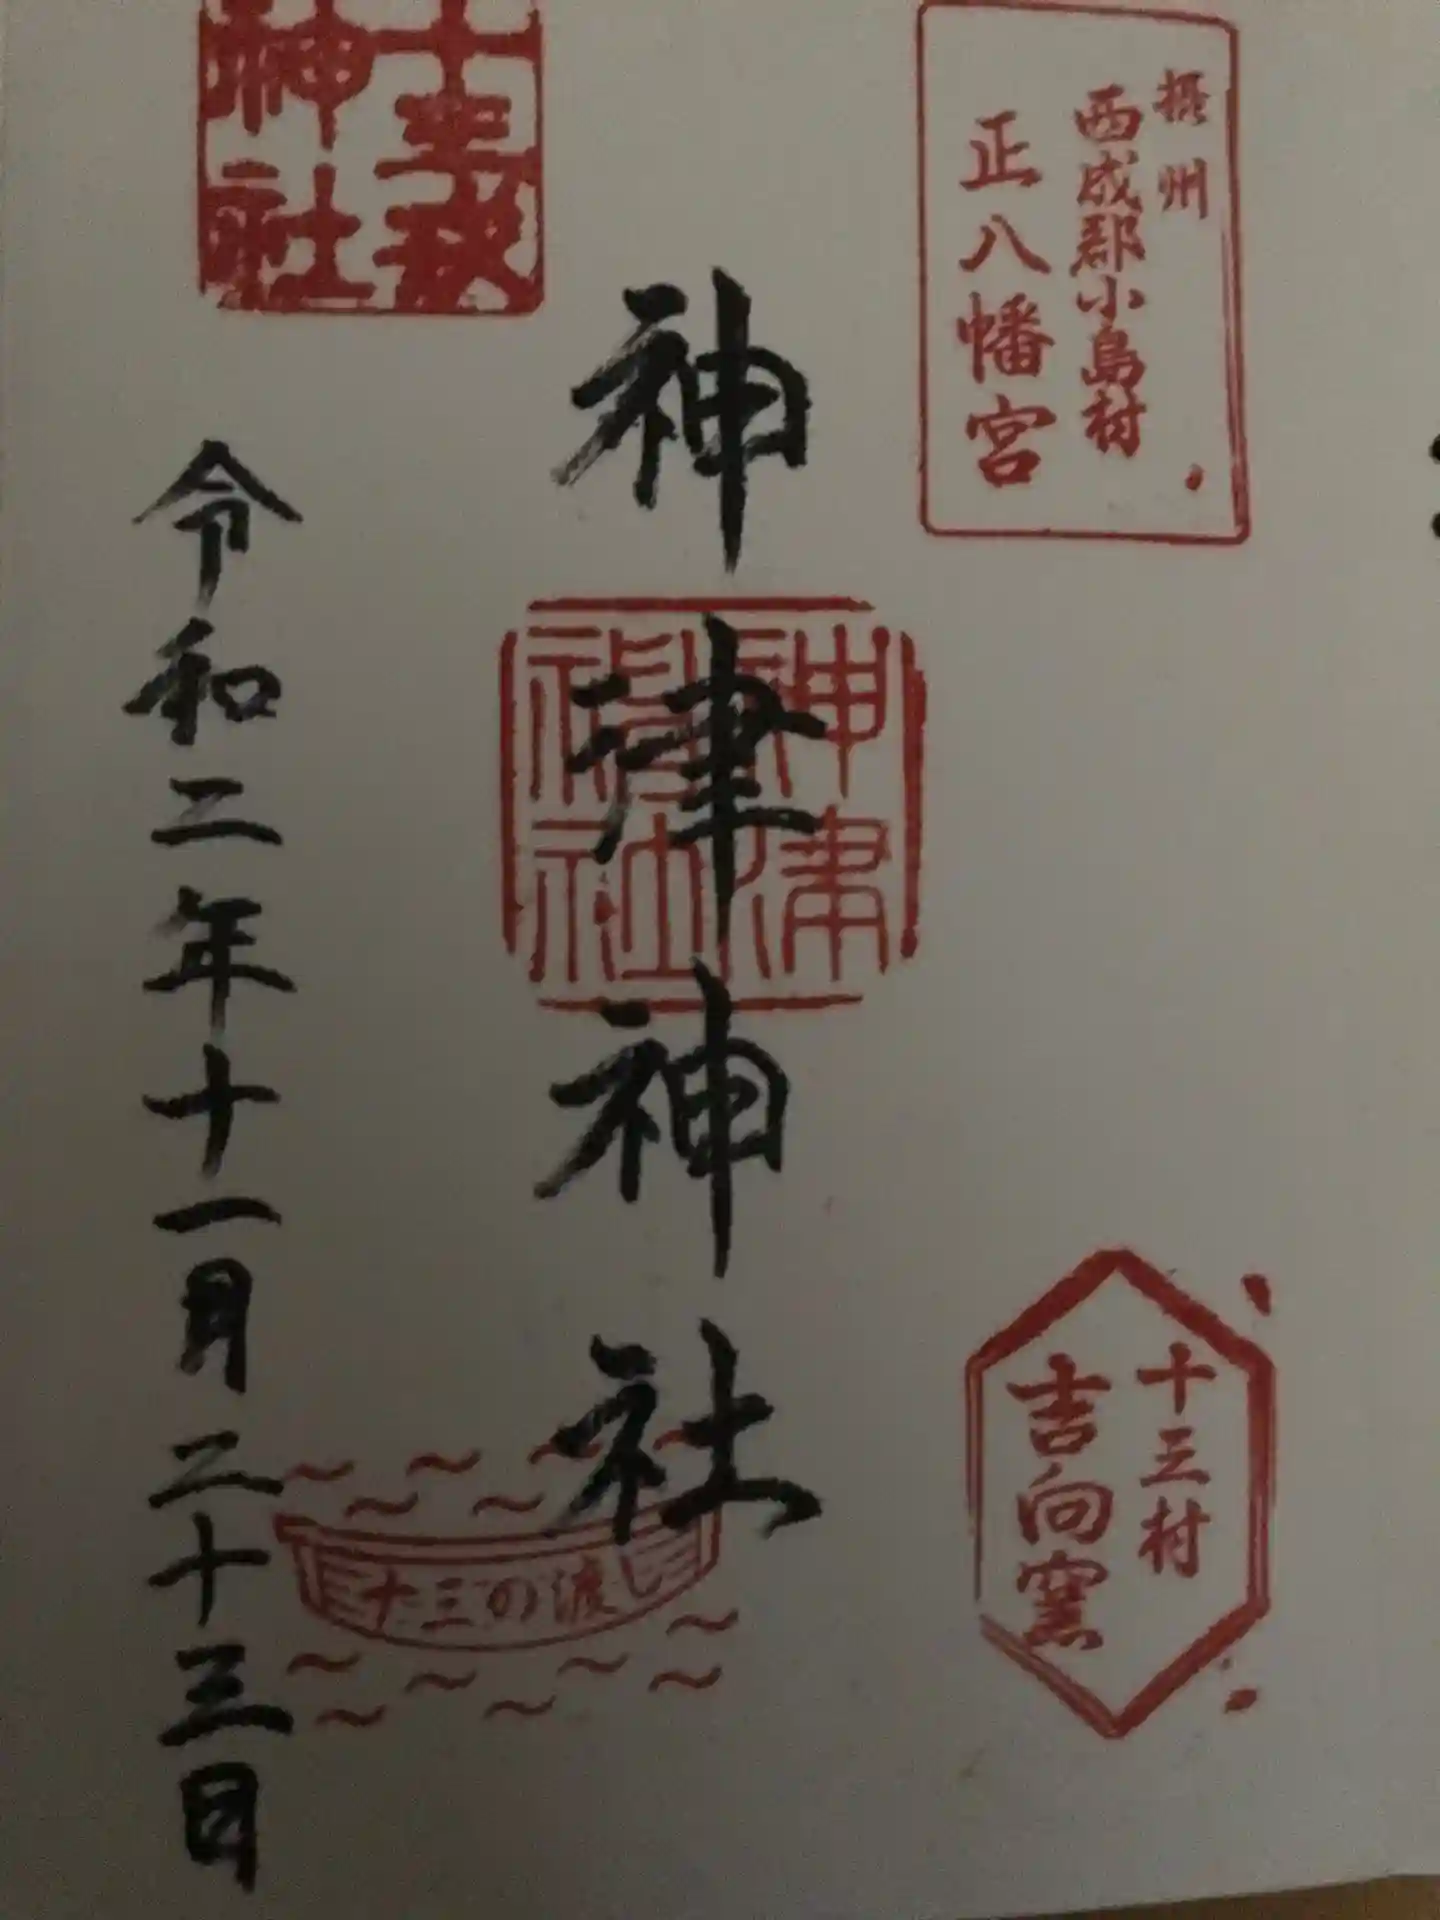 摂州
西成郡小島村
正八幡宮
十三村
吉向窯
神津神社
神津
神社
十三戎
神社
十三の渡し
令和二年十一月二十三日